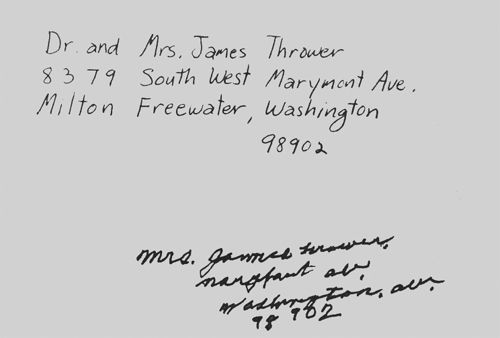 Dr. and Mrs. James Thrower
8379 South West Marymont Ave.
Milton Freewater, Washington
98902
Mrs. James thrower,
av.
Washington, av.
98 902